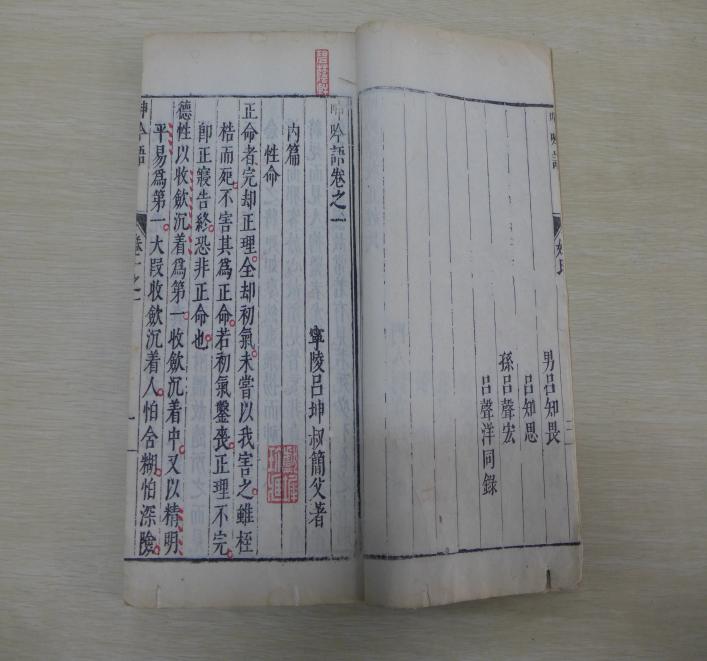 男呂知畏
呂知思
孫呂聲宏
呂聲洋同錄
呻吟語卷之一
寧陵呂坤叔簡父著
內篇
性命
正命者完却正理全却初氣未嘗以我害之雖桎
梏而死不害其爲正命若初氣鑿喪正理不完
卽正寢告終恐非正命也
德性以收斂沉着爲第一收斂沉着中又以精明
平易爲第一大段收斂沉着人怕含糊怕深險
呻吟語
卷一之
一